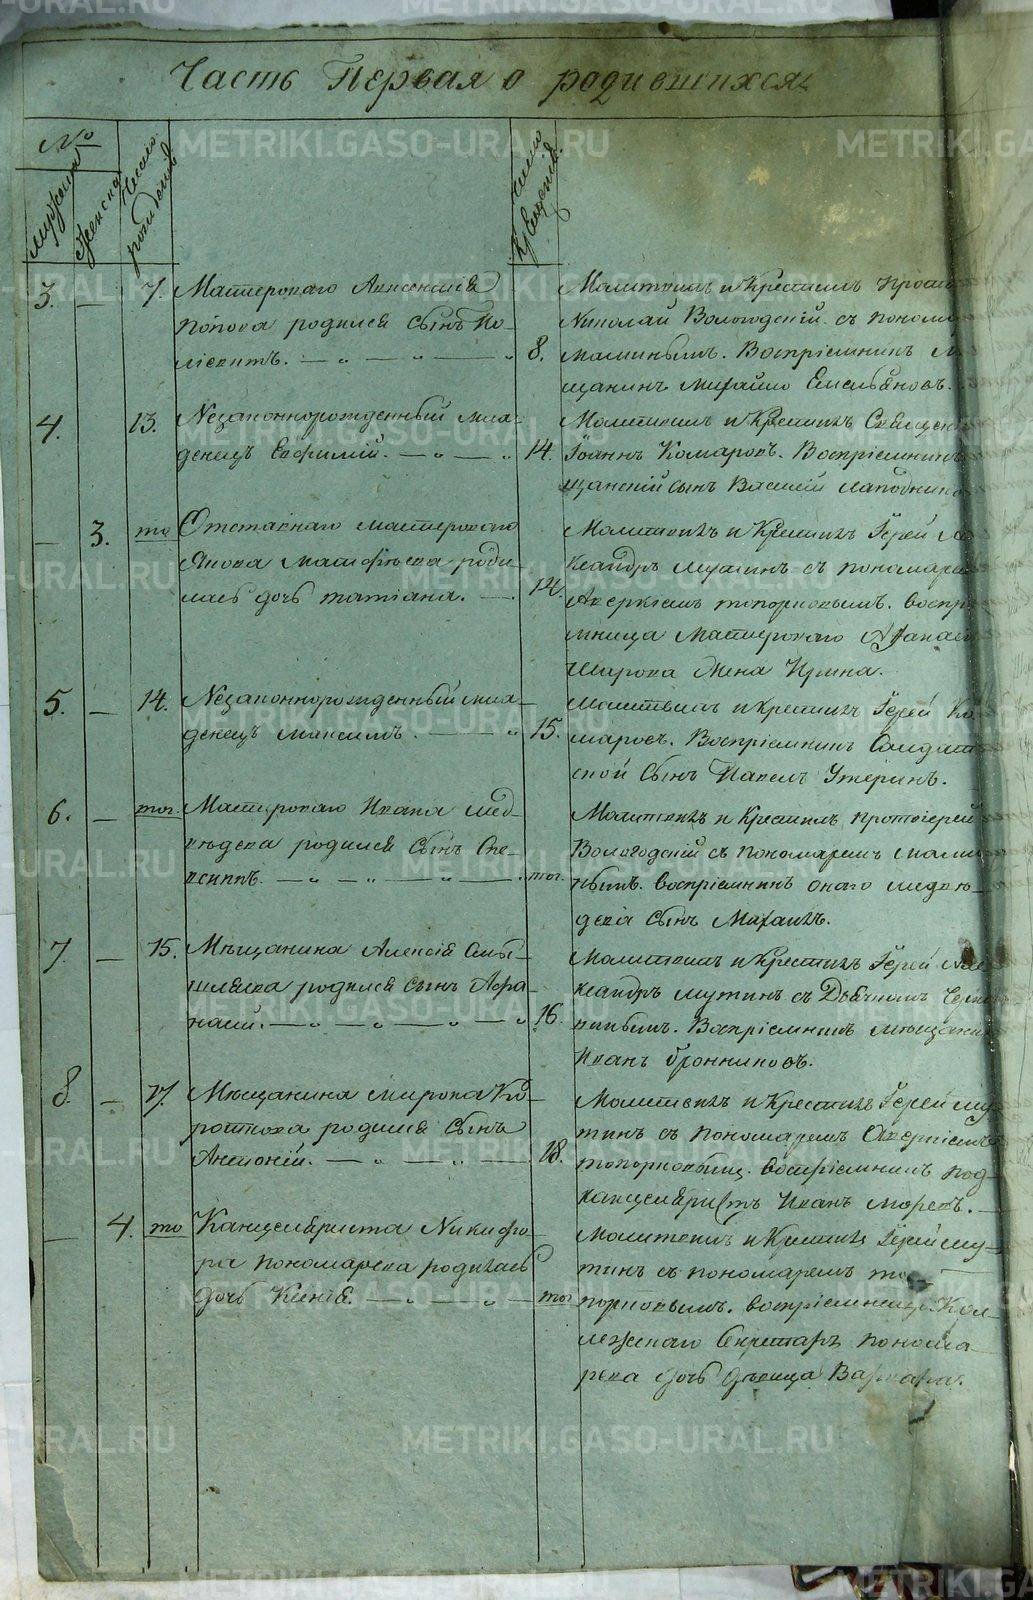 Часть Первая о родившихся
№
мужеска
женска
Число
рождения
число
крещения
3. — 7. Мастероваго Авксентия
Попова родился сынъ По-
ліевктъ.
8.
Молитвилъ и Крестилъ Прото
Николай Вологодскій съ поном
Маминымъ. Воспріемникъ м
щанинъ Михайло Емельяновъ.
4. 13. Незаконнорожденный мла-
денецъ Евфимій.
14.
Молитвилъ и Крестилъ Священ
Іоаннъ Комаровъ. Воспріемникъ
щанскій сынъ Василій Лапо
— 3. то Отставнаго мастероваго
Якова Матфѣева роди-
лась дочь Татіана. —
14.
Молитвилъ и Крестилъ Іерей Ал
ксандръ Мутинъ съ пономаре
Аверкіемъ Топорковымъ. воспр
мница Мастероваго Афанас
Шарова жена Ирина.
5. — 14. Незаконнорожденный мла-
денецъ Максимъ.
15.
Молитвилъ и Крестилъ Іерей Ко
маровъ. Воспріемникъ Солдат
ской сынъ Павелъ
6. — тог. Мастероваго Ивана Мед-
вѣдева родился сынъ Оне-
сиппъ.
тог.
Молитвилъ и Крестилъ протоіерей
Вологодскій съ пономаремъ Мами
нымъ. воспріемникъ онаго Медвѣ-
дева сынъ Михаилъ.
7. — 15. Мѣщанина Алексія Смы-
шляева родился сынъ Афа-
насій.
16.
Молитвилъ и Крестилъ Іерей Але
ксандръ Мутинъ съ Дьячкомъ
Воспріемникъ мѣщани
Иванъ Бронниковъ.
8. — 17. Мѣщанина Мирона Ко-
роткова родился сынъ
Антоній.
18.
Молитвилъ и Крестилъ Іерей Му-
тинъ съ пономаремъ Аверкіемъ
Топорковымъ. воспріемникъ под-
канцеляристъ Иванъ
— 4. то Канцеляриста Никифо-
ра Пономарева родилась
дочь Ксенія.
тог.
Молитвилъ и Крестилъ Іерей Му-
тинъ съ пономаремъ То-
порковымъ. воспріемница Кол-
лежскаго Секретаря Понома
рева дочь дѣвица Варвара.
METRIKI.GASO-URAL.RU